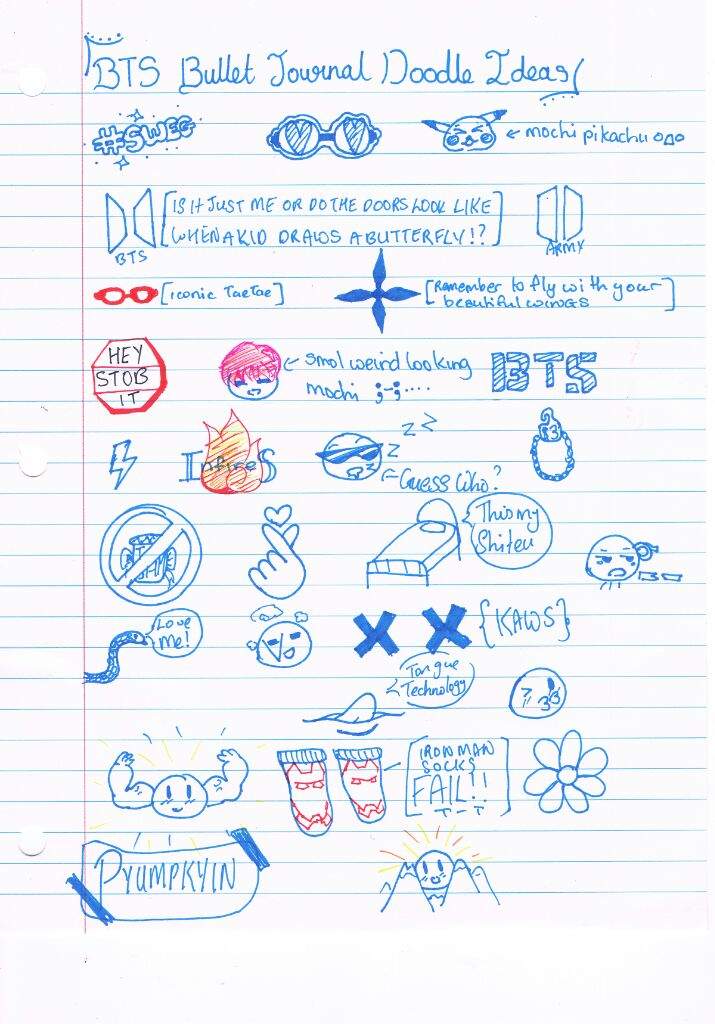 BTS Bullet Journal Doodle Ideas
#SWEG
← mochi pikachu
IS IT JUST ME OR DO THE DOORS LOOK LIKE
WHEN A KID DRAWS A BUTTERFLY!?
BTS
ARMY
[iconic TaeTae]
[Remember to fly with your
beautiful wings]
HEY
STOB
IT
← smol weird looking
mochi ;-;....
BTS
InfireS
z z z
Guess Who?
This my
Shiteu
Love
me!
{KAWS}
Tongue
Technology
IRON MAN
SOCKS
FAIL!!
T-T
PYUMPKYIN